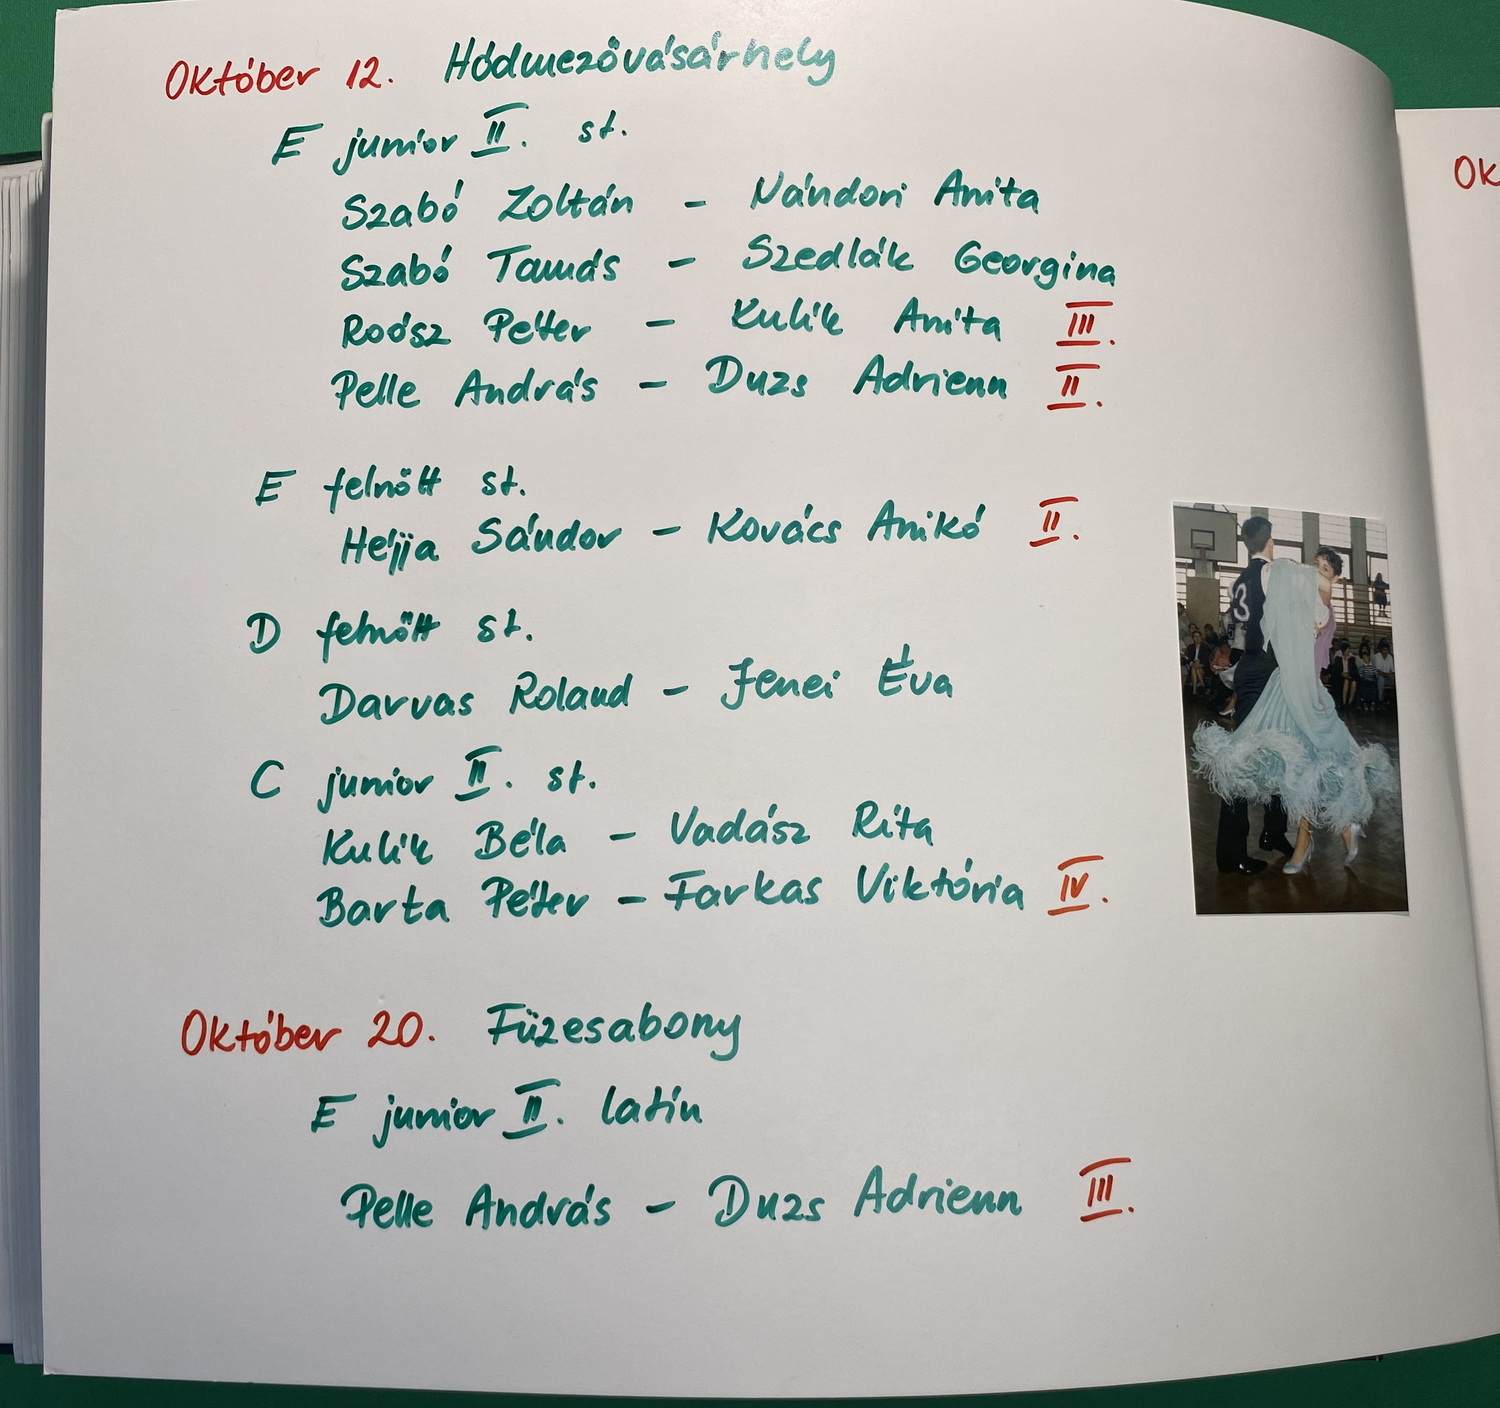 Október 12. Hódmezővásárhely
E junior II. st.
Szabó Zoltán - Nándori Anita
Szabó Tamás - Szedlák Georgina
Roósz Péter - Kulik Anita III.
Pelle András - Duzs Adrienn II.
E felnőtt st.
Héjja Sándor - Kovács Anikó II.
D felnőtt st.
Darvas Roland - Jenei Éva
C junior II. st.
Kulik Béla - Vadász Rita
Barta Péter - Farkas Viktória IV.
3
Október 20. Füzesabony
E junior II. latin
Pelle András - Duzs Adrienn III.
Ok